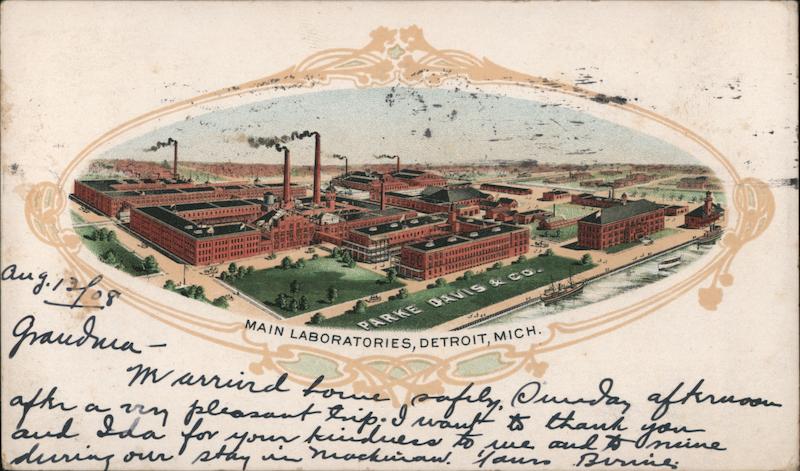 PARKE DAVIS & CO.
MAIN LABORATORIES, DETROIT, MICH.
Aug. 13/08
Grandma —
We arrived home safely, Sunday afternoon
after a very pleasant trip. I want to thank you
and Ida for your kindness to me and to mine
during our stay in Mackinaw. Yours